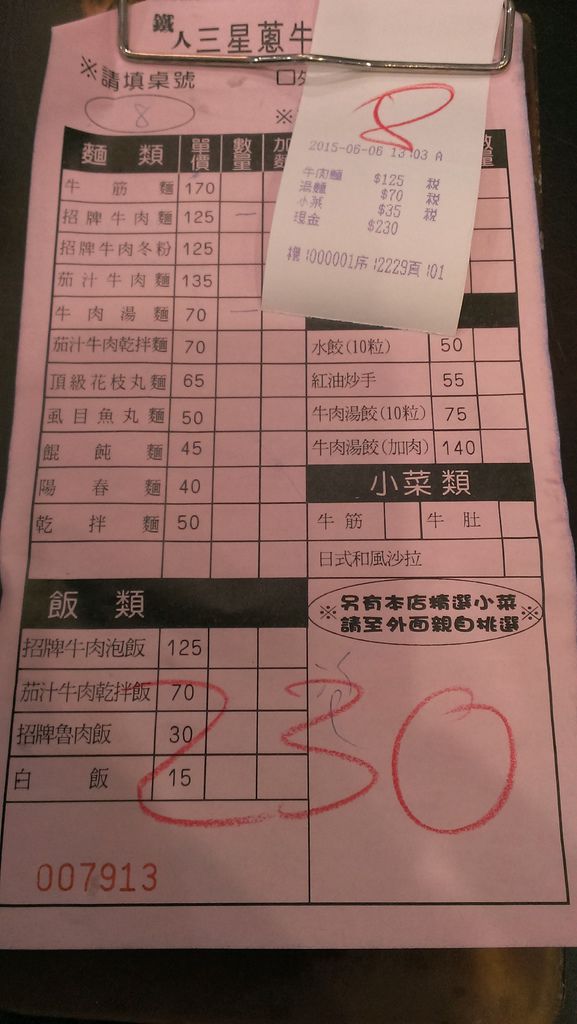 鐵人三星蔥牛
※請填桌號 □
8
※
麵類 單價 數量 加
牛筋麵 170
招牌牛肉麵 125 一
招牌牛肉冬粉 125
茄汁牛肉麵 135
牛肉湯麵 70 一
茄汁牛肉乾拌麵 70
頂級花枝丸麵 65
虱目魚丸麵 50
餛飩麵 45
陽春麵 40
乾拌麵 50
飯類
招牌牛肉泡飯 125
茄汁牛肉乾拌飯 70
招牌魯肉飯 30
白飯 15
007913
8
2015-06-06 13:03 A
牛肉麵 $125 稅
湯麵 $70 稅
小菜 $35 稅
現金 $230
機:000001序:2229頁:01
量
水餃(10粒) 50
紅油炒手 55
牛肉湯餃(10粒) 75
牛肉湯餃(加肉) 140
小菜類
牛筋 牛肚
日式和風沙拉
※另有本店精選小菜※
請至外面親自挑選
230